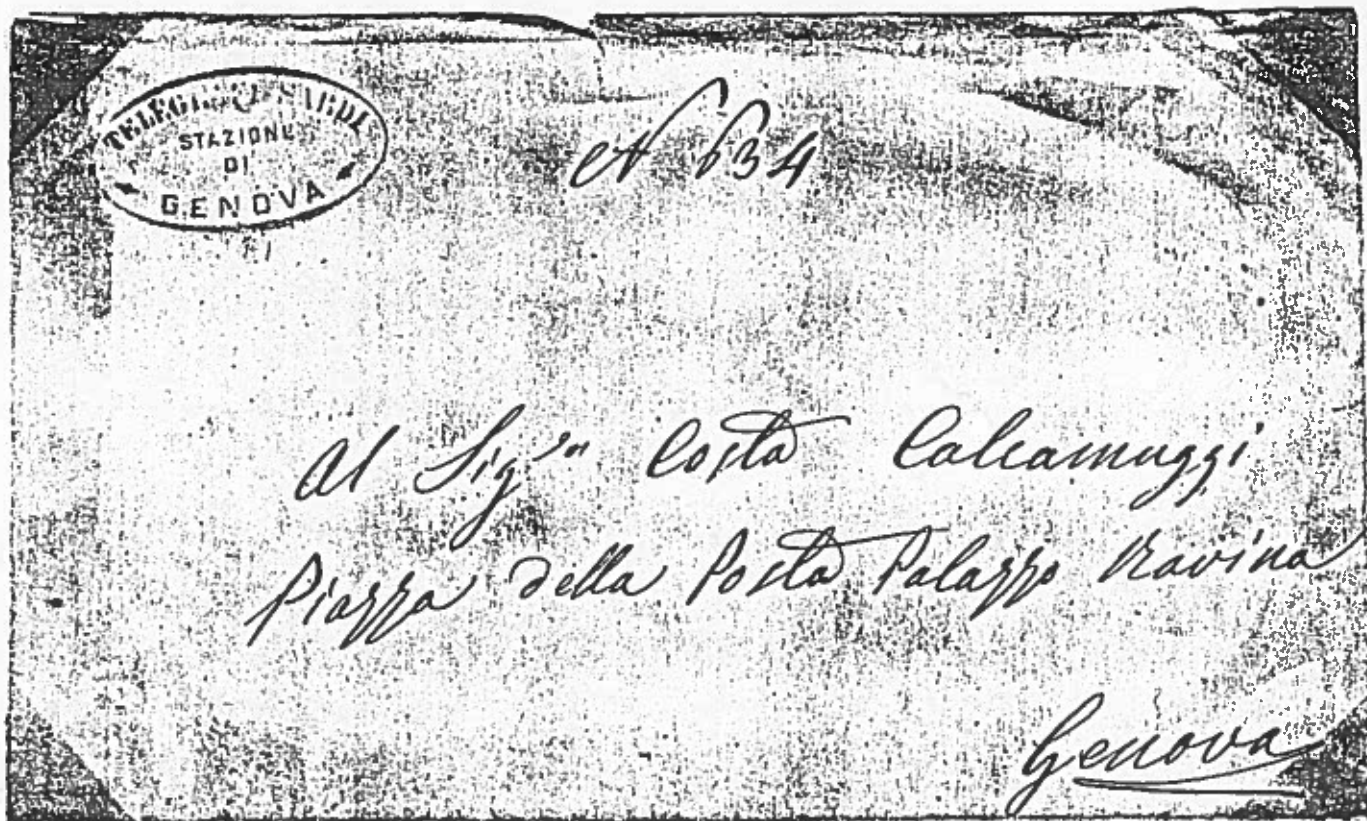 TELEGRAFI SARDI
STAZIONE
DI
GENOVA
N 634
Al Sig.r Costa Calcamuggi
Piazza della Posta Palazzo Ravina
Genova